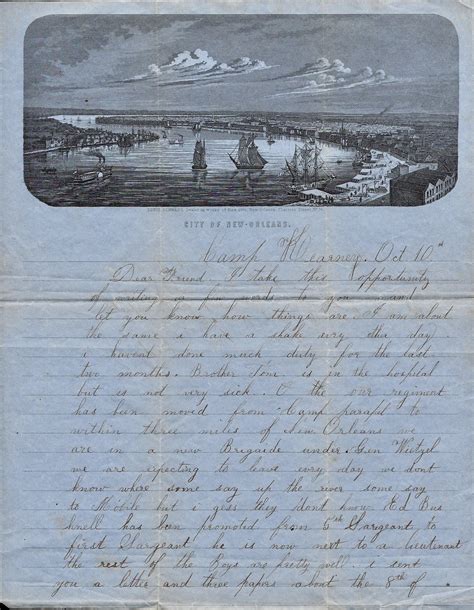 CITY OF NEW-ORLEANS.
Camp Kearney Oct 10th
Dear Friend I take this opportunity
of writing a few words to you and
let you know how things are. I am about
the same i have a shake evry otha day.
i havent done much duty for the last
two months. Brother Tom. is in the hospital
but is not very sick. O the our regiment
has been moved from Camp parapit to
within three miles of New Orleans we
are in a new Brigaide under Gen Weitzel
we are expecting to leave evry day we dont
know where some say up the river some say
to Mobile but i gess they dont know Ed Bus
hnell has been promoted from 5th Sargeant to
first Sargeant he is now next to a lieutenant
the rest of the Boys are pretty well. i sent
you a letter and three papers about the 8th of